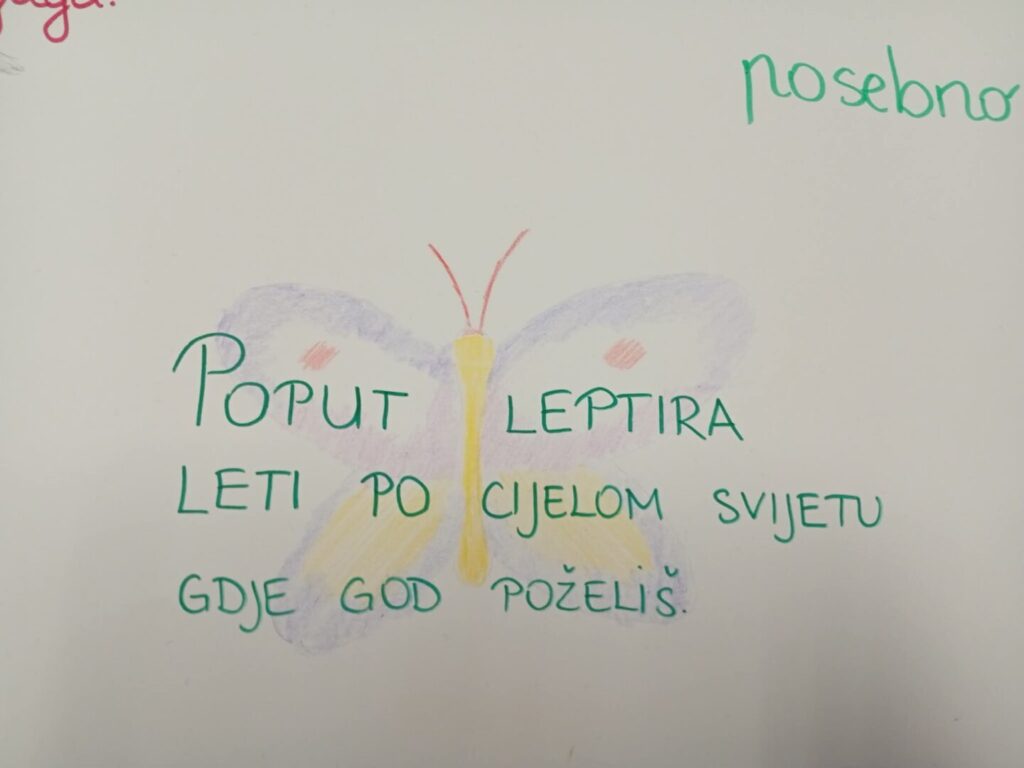 posebno
POPUT LEPTIRA
LETI PO CIJELOM SVIJETU
GDJE GOD POŽELIŠ.